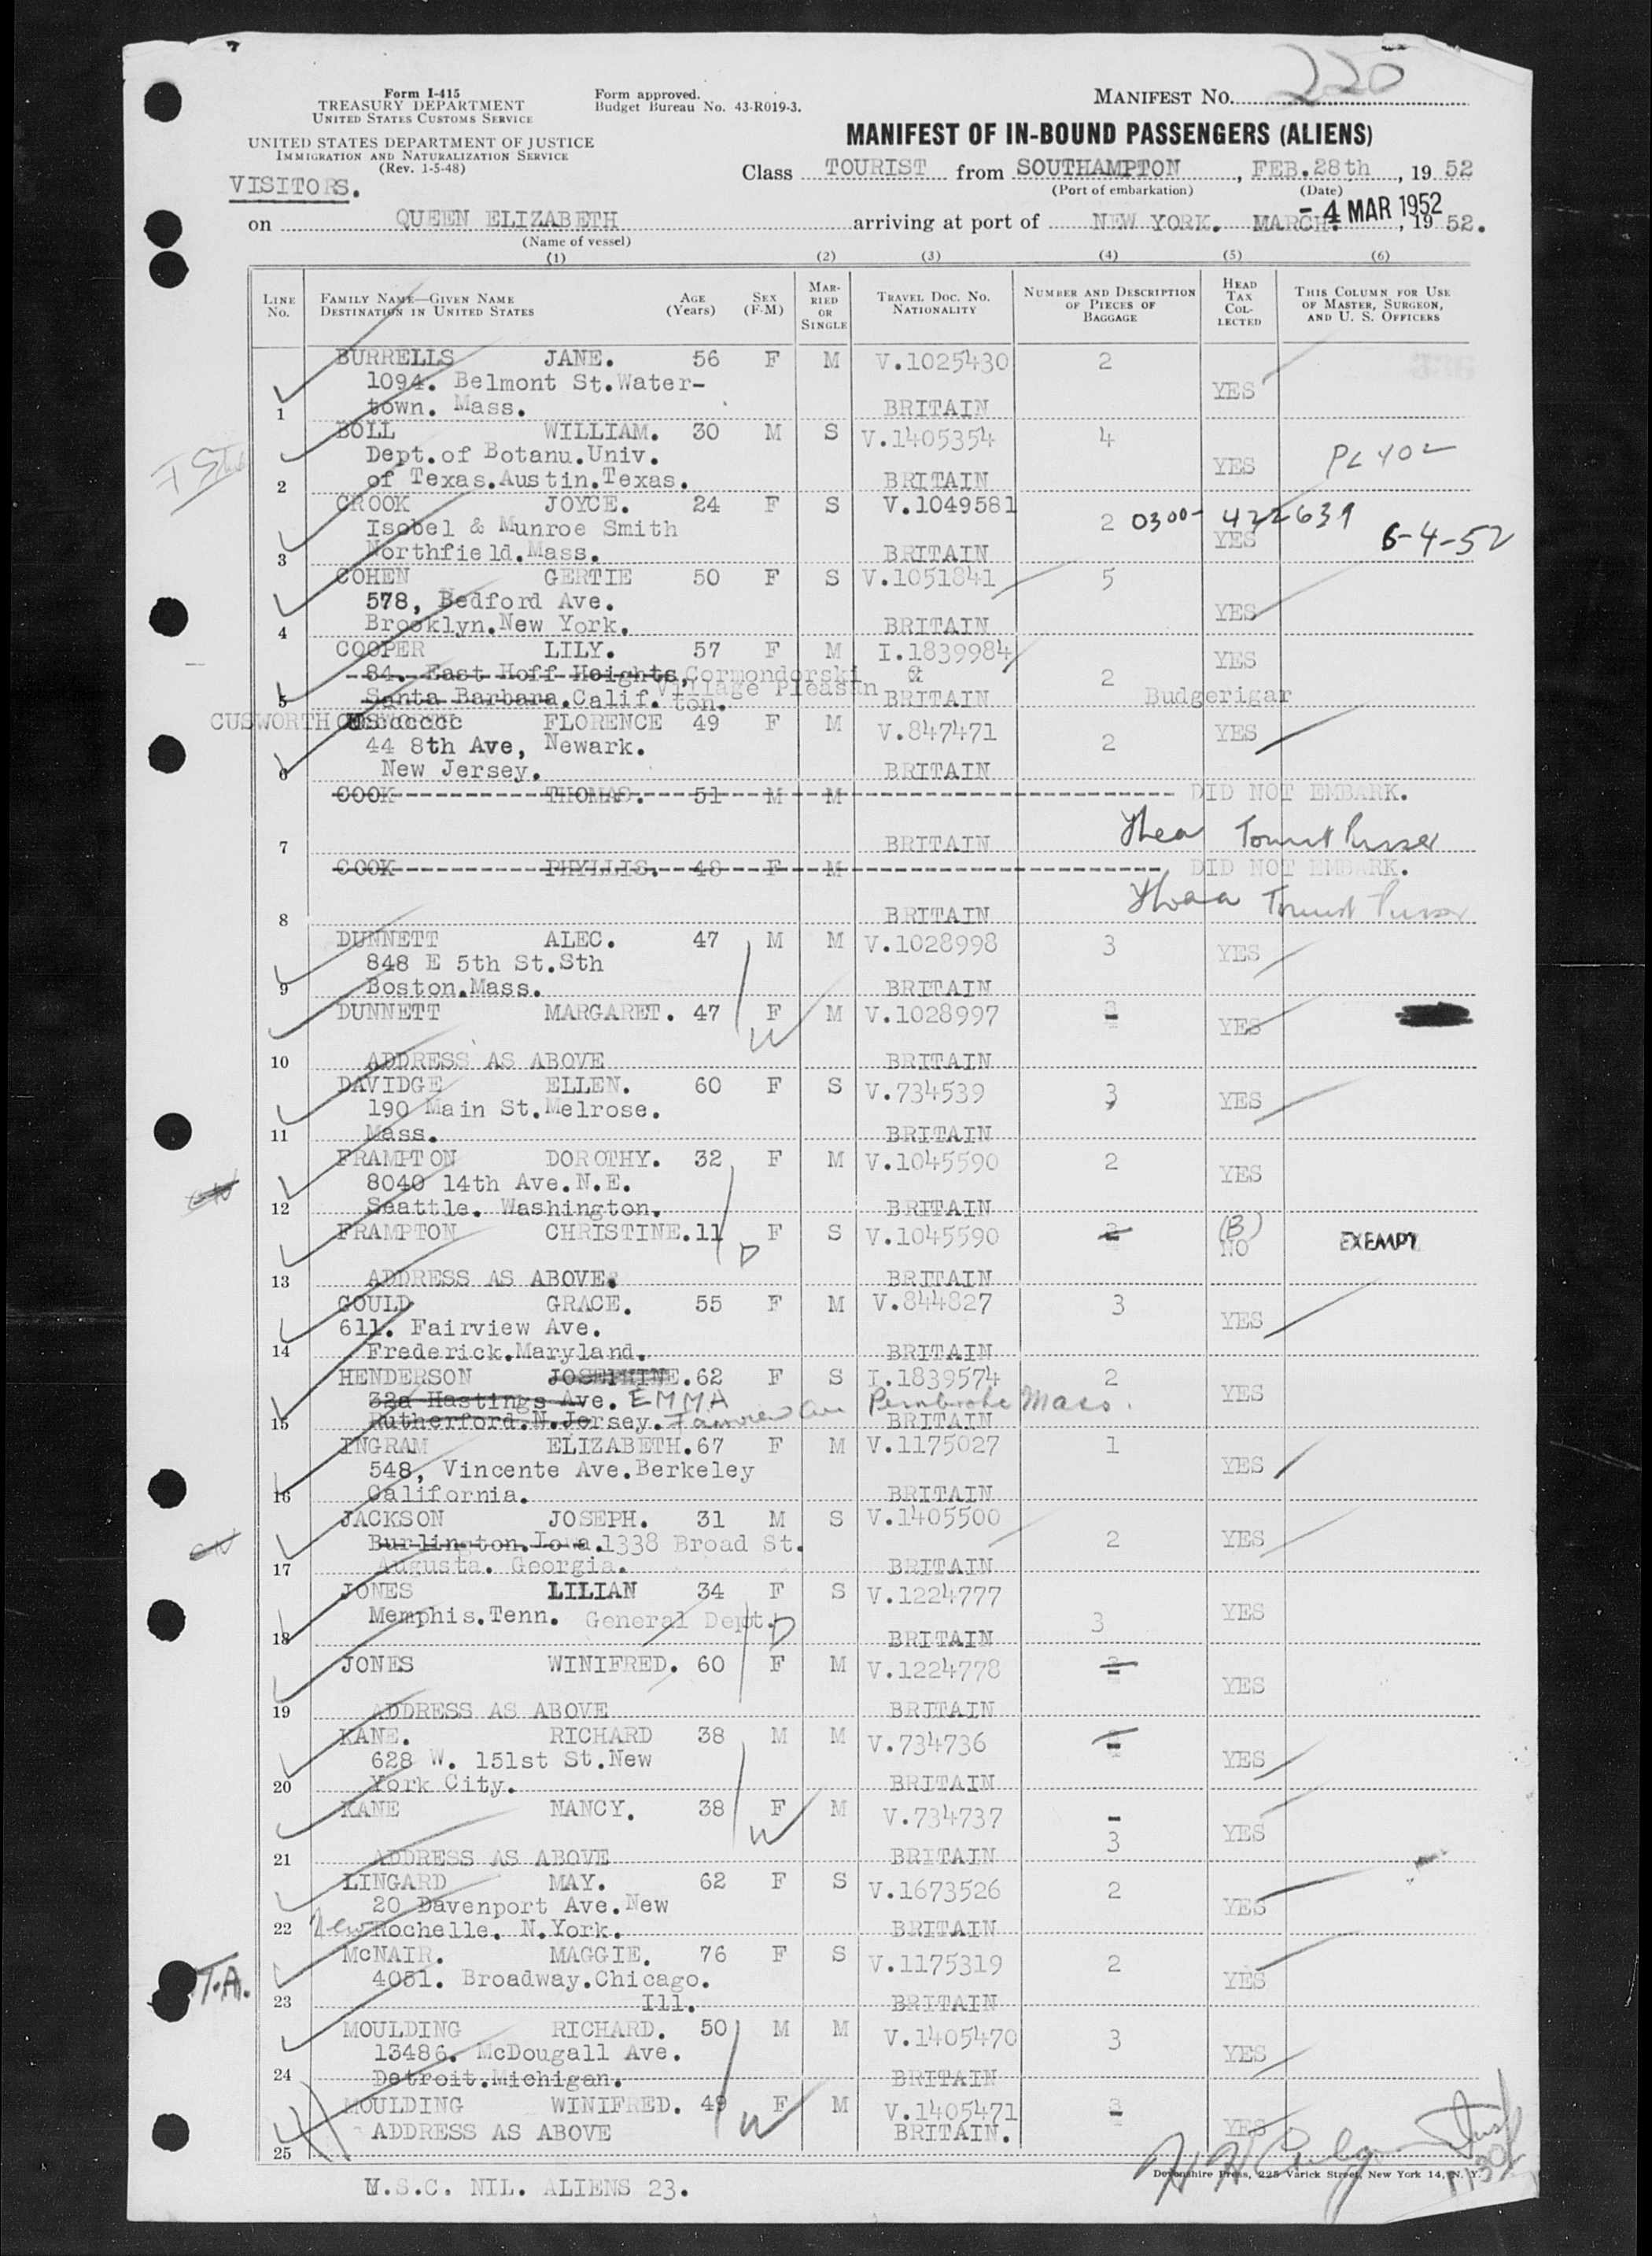 220
Form I-415
TREASURY DEPARTMENT
UNITED STATES CUSTOMS SERVICE
UNITED STATES DEPARTMENT OF JUSTICE
IMMIGRATION AND NATURALIZATION SERVICE
(Rev. 1-5-48)
Form approved.
Budget Bureau No. 43-R019-3.
MANIFEST NO.
MANIFEST OF IN-BOUND PASSENGERS (ALIENS)
VISITORS.
Class TOURIST from SOUTHAMPTON, FEB.28th, 1952
(Port of embarkation) (Date)
- 4 MAR 1952
on QUEEN ELIZABETH arriving at port of NEW YORK. MARCH. , 1952.
(Name of vessel)
(1) (2) (3) (4) (5) (6)
LINE No. FAMILY NAME—GIVEN NAME DESTINATION IN UNITED STATES AGE (Years) SEX (F-M) MARRIED OR SINGLE TRAVEL DOC. NO. NATIONALITY NUMBER AND DESCRIPTION OF PIECES OF BAGGAGE HEAD TAX COLLECTED THIS COLUMN FOR USE OF MASTER, SURGEON, AND U. S. OFFICERS
BURRELLS JANE. 56 F M V.1025430 2
1094. Belmont St.Water- YES
1 town. Mass. BRITAIN
BOLL WILLIAM. 30 M S V.1405354 4
Dept.of Botanu.Univ. YES PL 402
2 of Texas.Austin.Texas. BRITAIN
CROOK JOYCE. 24 F S V.1049581
Isobel & Munroe Smith 2 0300- 422639 YES 6-4-52
3 Northfield.Mass. BRITAIN
COHEN GERTIE 50 F S V.1051841 5
578, Bedford Ave. YES
4 Brooklyn.New York. BRITAIN
COOPER LILY. 57 F M I.1839984 YES
84. East Hoff Heights, Cormondorski & 2
5 Santa Barbara.Calif. Village Pleasanton. BRITAIN Budgerigar
CUSWORTH FLORENCE 49 F M V.847471 YES
44 8th Ave, Newark. 2
6 New Jersey. BRITAIN
COOK THOMAS. 51 M M DID NOT EMBARK.
7 BRITAIN Tourist Purser
COOK PHYLLIS. 48 F M DID NOT EMBARK.
8 BRITAIN Tourist Purser
DUNNETT ALEC. 47 M M V.1028998 3 YES
848 E 5th St.Sth
9 Boston.Mass. BRITAIN
DUNNETT MARGARET. 47 F M V.1028997 YES
W
10 ADDRESS AS ABOVE BRITAIN
DAVIDGE ELLEN. 60 F S V.734539 3 YES
190 Main St.Melrose.
11 Mass. BRITAIN
FRAMPTON DOROTHY. 32 F M V.1045590 2 YES
8040 14th Ave.N.E.
12 Seattle. Washington. BRITAIN
FRAMPTON CHRISTINE.11 F S V.1045590 2 (B) NO EXEMPT
D
13 ADDRESS AS ABOVE. BRITAIN
GOULD GRACE. 55 F M V.844827 3
611. Fairview Ave. YES
14 Frederick.Maryland. BRITAIN
HENDERSON JOSEPHINE.62 F S I.1839574 2
32a Hastings Ave. EMMA YES
15 Rutherford.N.Jersey. Fairview Ave Pembroke Mass. BRITAIN
INGRAM ELIZABETH.67 F M V.1175027 1
548, Vincente Ave.Berkeley YES
16 California. BRITAIN
JACKSON JOSEPH. 31 M S V.1405500
Burlington.Iowa.1338 Broad St. 2 YES
17 Augusta. Georgia. BRITAIN
JONES LILIAN 34 F S V.1224777
Memphis.Tenn. General Dept. D 3 YES
18 BRITAIN
JONES WINIFRED. 60 F M V.1224778 YES
19 ADDRESS AS ABOVE BRITAIN
KANE. RICHARD 38 M M V.734736
628 W. 151st St.New YES
20 York City. BRITAIN
KANE NANCY. 38 F M V.734737 -
W 3 YES
21 ADDRESS AS ABOVE BRITAIN
LINGARD MAY. 62 F S V.1673526 2
20 Davenport Ave.New YES
22 New Rochelle. N.York. BRITAIN
McNAIR. MAGGIE. 76 F S V.1175319 2
T.A. 4051. Broadway.Chicago. YES
23 Ill. BRITAIN
MOULDING RICHARD. 50 M M V.1405470 3
13486. McDougall Ave. YES
24 Detroit.Michigan. BRITAIN
MOULDING WINIFRED. 49 F M V.1405471
ADDRESS AS ABOVE W BRITAIN. YES
25
Devonshire Press, 225 Varick Street, New York 14, N. Y.
U.S.C. NIL. ALIENS 23.